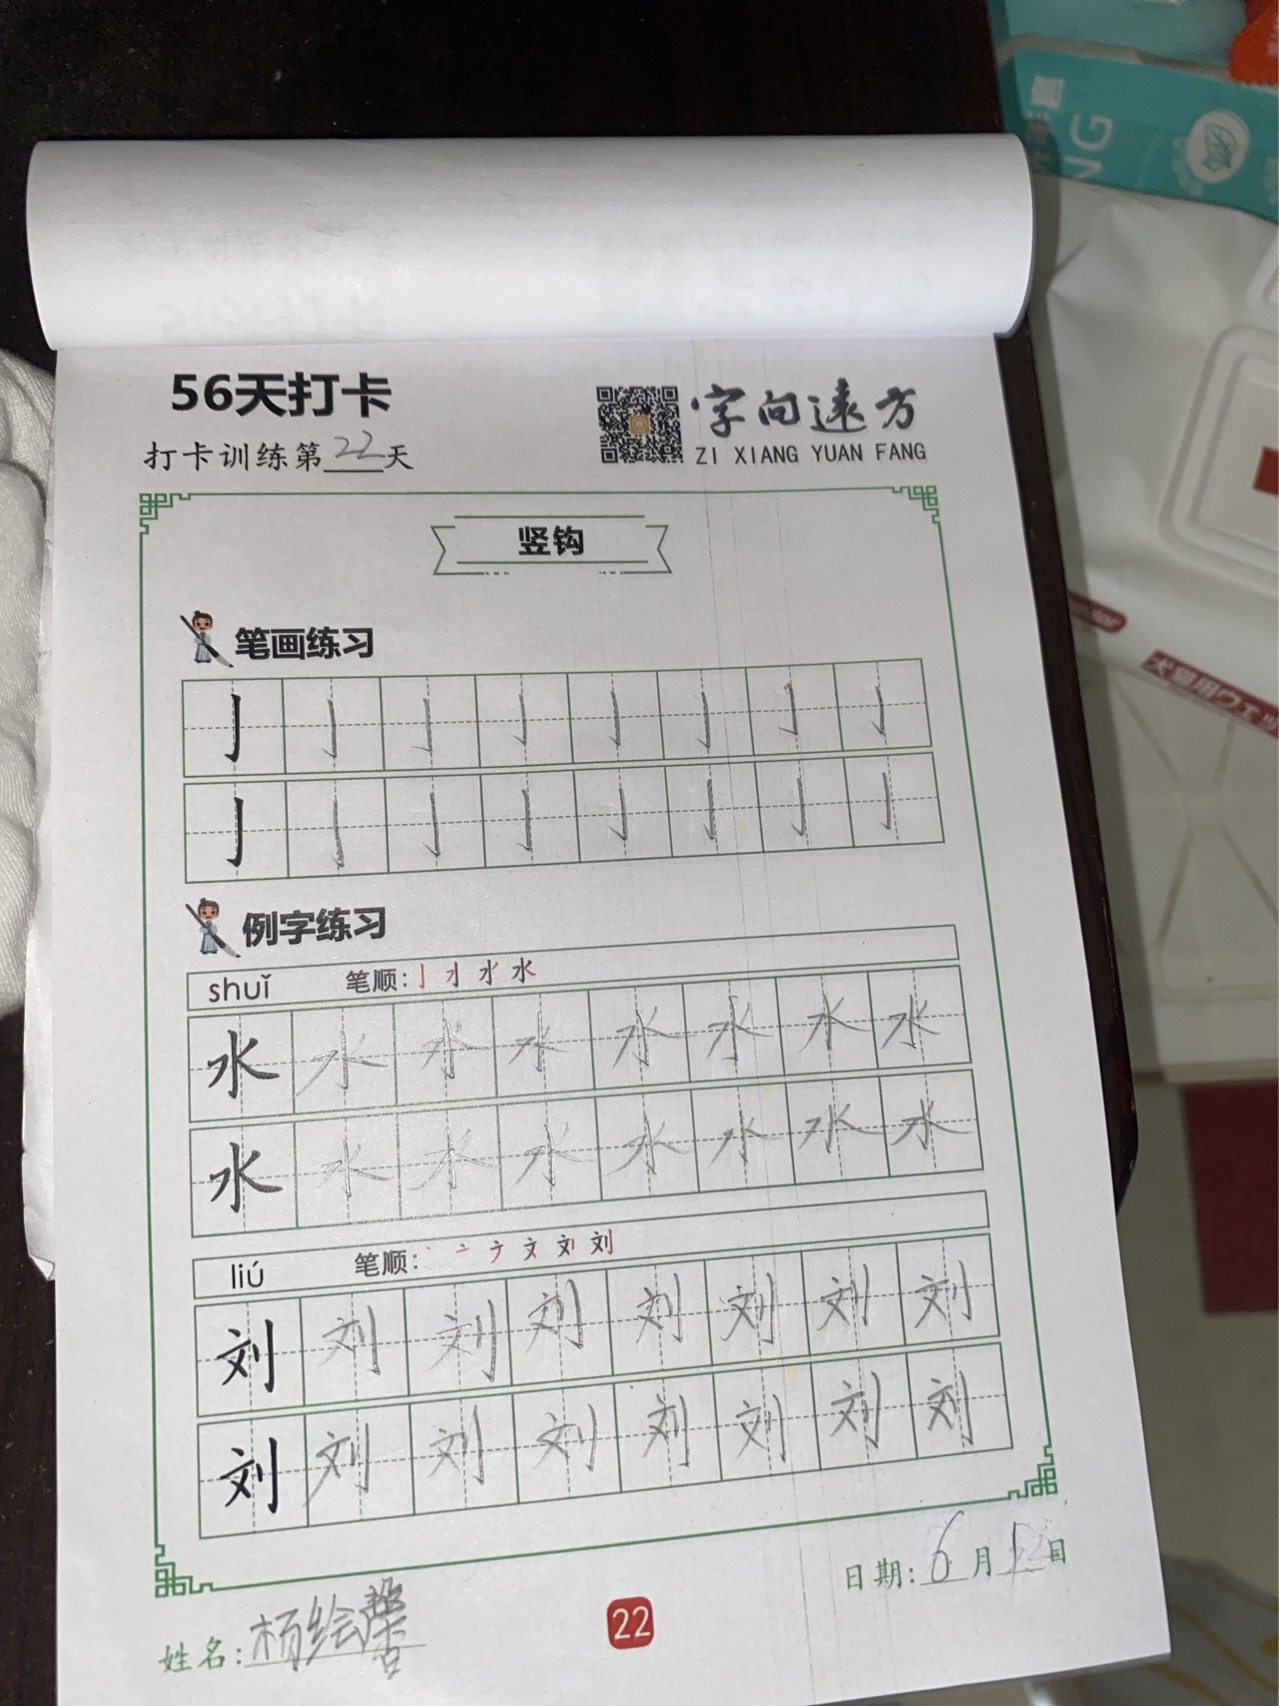 56天打卡
打卡训练第22天
字向远方
ZI XIANG YUAN FANG
竖钩
笔画练习
亅亅亅亅亅亅亅亅
亅亅亅亅亅亅亅亅
例字练习
shuǐ 笔顺:
水水水水水水水水
水水水水水水水水
liú 笔顺:
刘刘刘刘刘刘刘刘
刘刘刘刘刘刘刘刘
日期:6月1日
姓名:杨绘馨
22
NG
犬猫用ウェッ